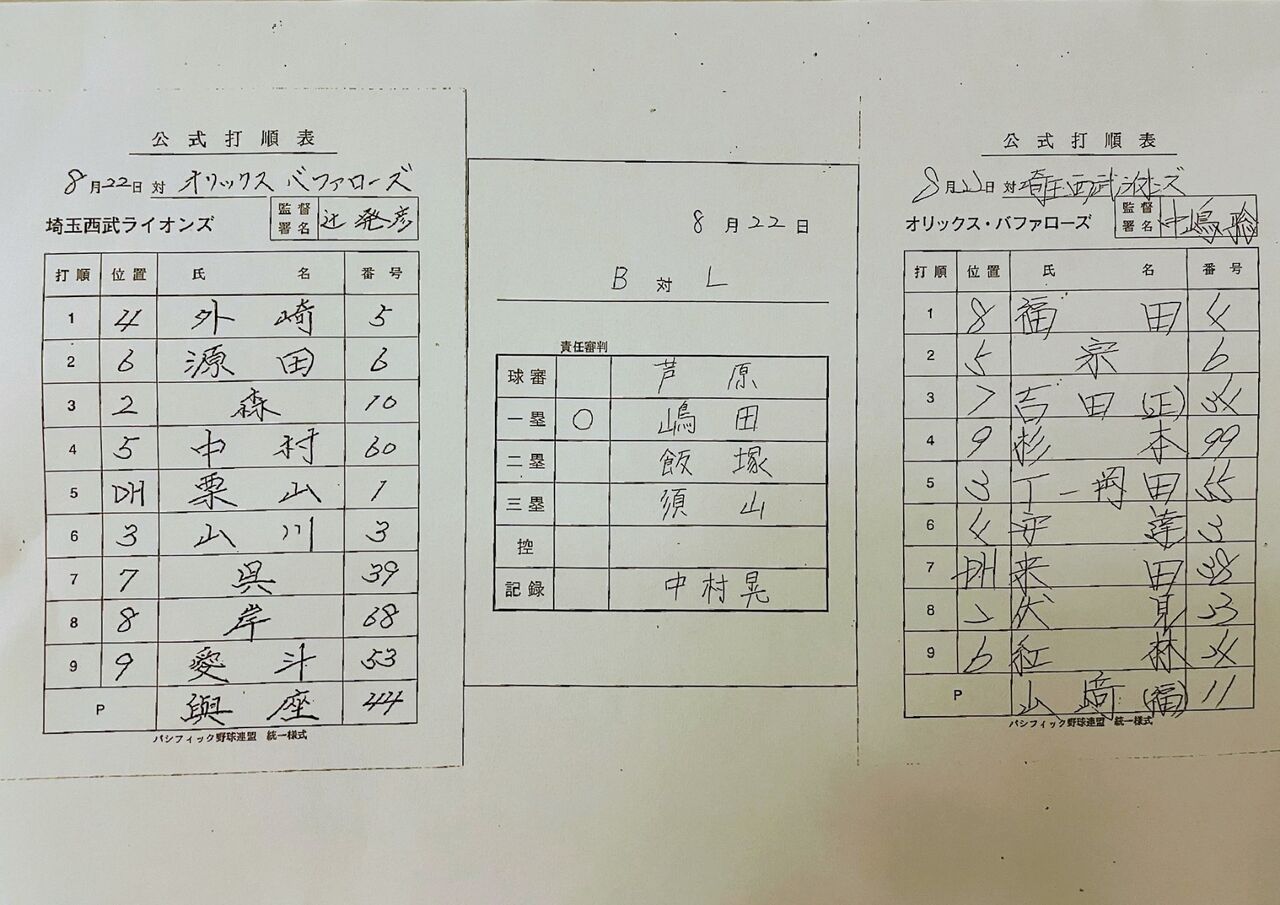 公式打順表
8月22日 対 オリックスバファローズ
埼玉西武ライオンズ 監督署名 辻発彦
打順 位置 氏名 番号
1 4 外崎 5
2 6 源田 6
3 2 森 10
4 5 中村 60
5 DH 栗山 1
6 3 山川 3
7 7 呉 39
8 8 岸 68
9 9 愛斗 53
P 與座 44
パシフィック野球連盟 統一様式
8月22日
B 対 L
責任審判
球審 芦原
一塁 ○ 嶋田
二塁 飯塚
三塁 須山
控
記録 中村晃
公式打順表
8月22日 対 埼玉西武ライオンズ
オリックス・バファローズ 監督署名 中嶋聡
打順 位置 氏名 番号
1 8 福田 4
2 5 宗 6
3 7 吉田(正) 34
4 9 杉本 99
5 3 T-岡田 55
6 4 安達 3
7 DH 来田 38
8 2 伏見 23
9 6 紅林 24
P 山﨑(福) 11
パシフィック野球連盟 統一様式